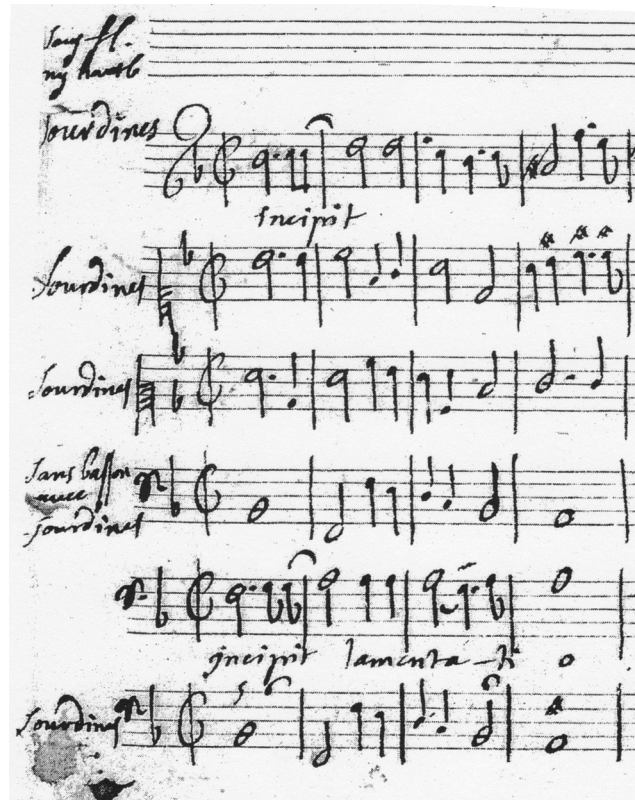 sans fl.
ny hautb
Sourdines
Incipit
Sourdines
Sourdines
Sans basson
avec
Sourdines
jncipit lamenta - ti o
5 6 6
Sourdines